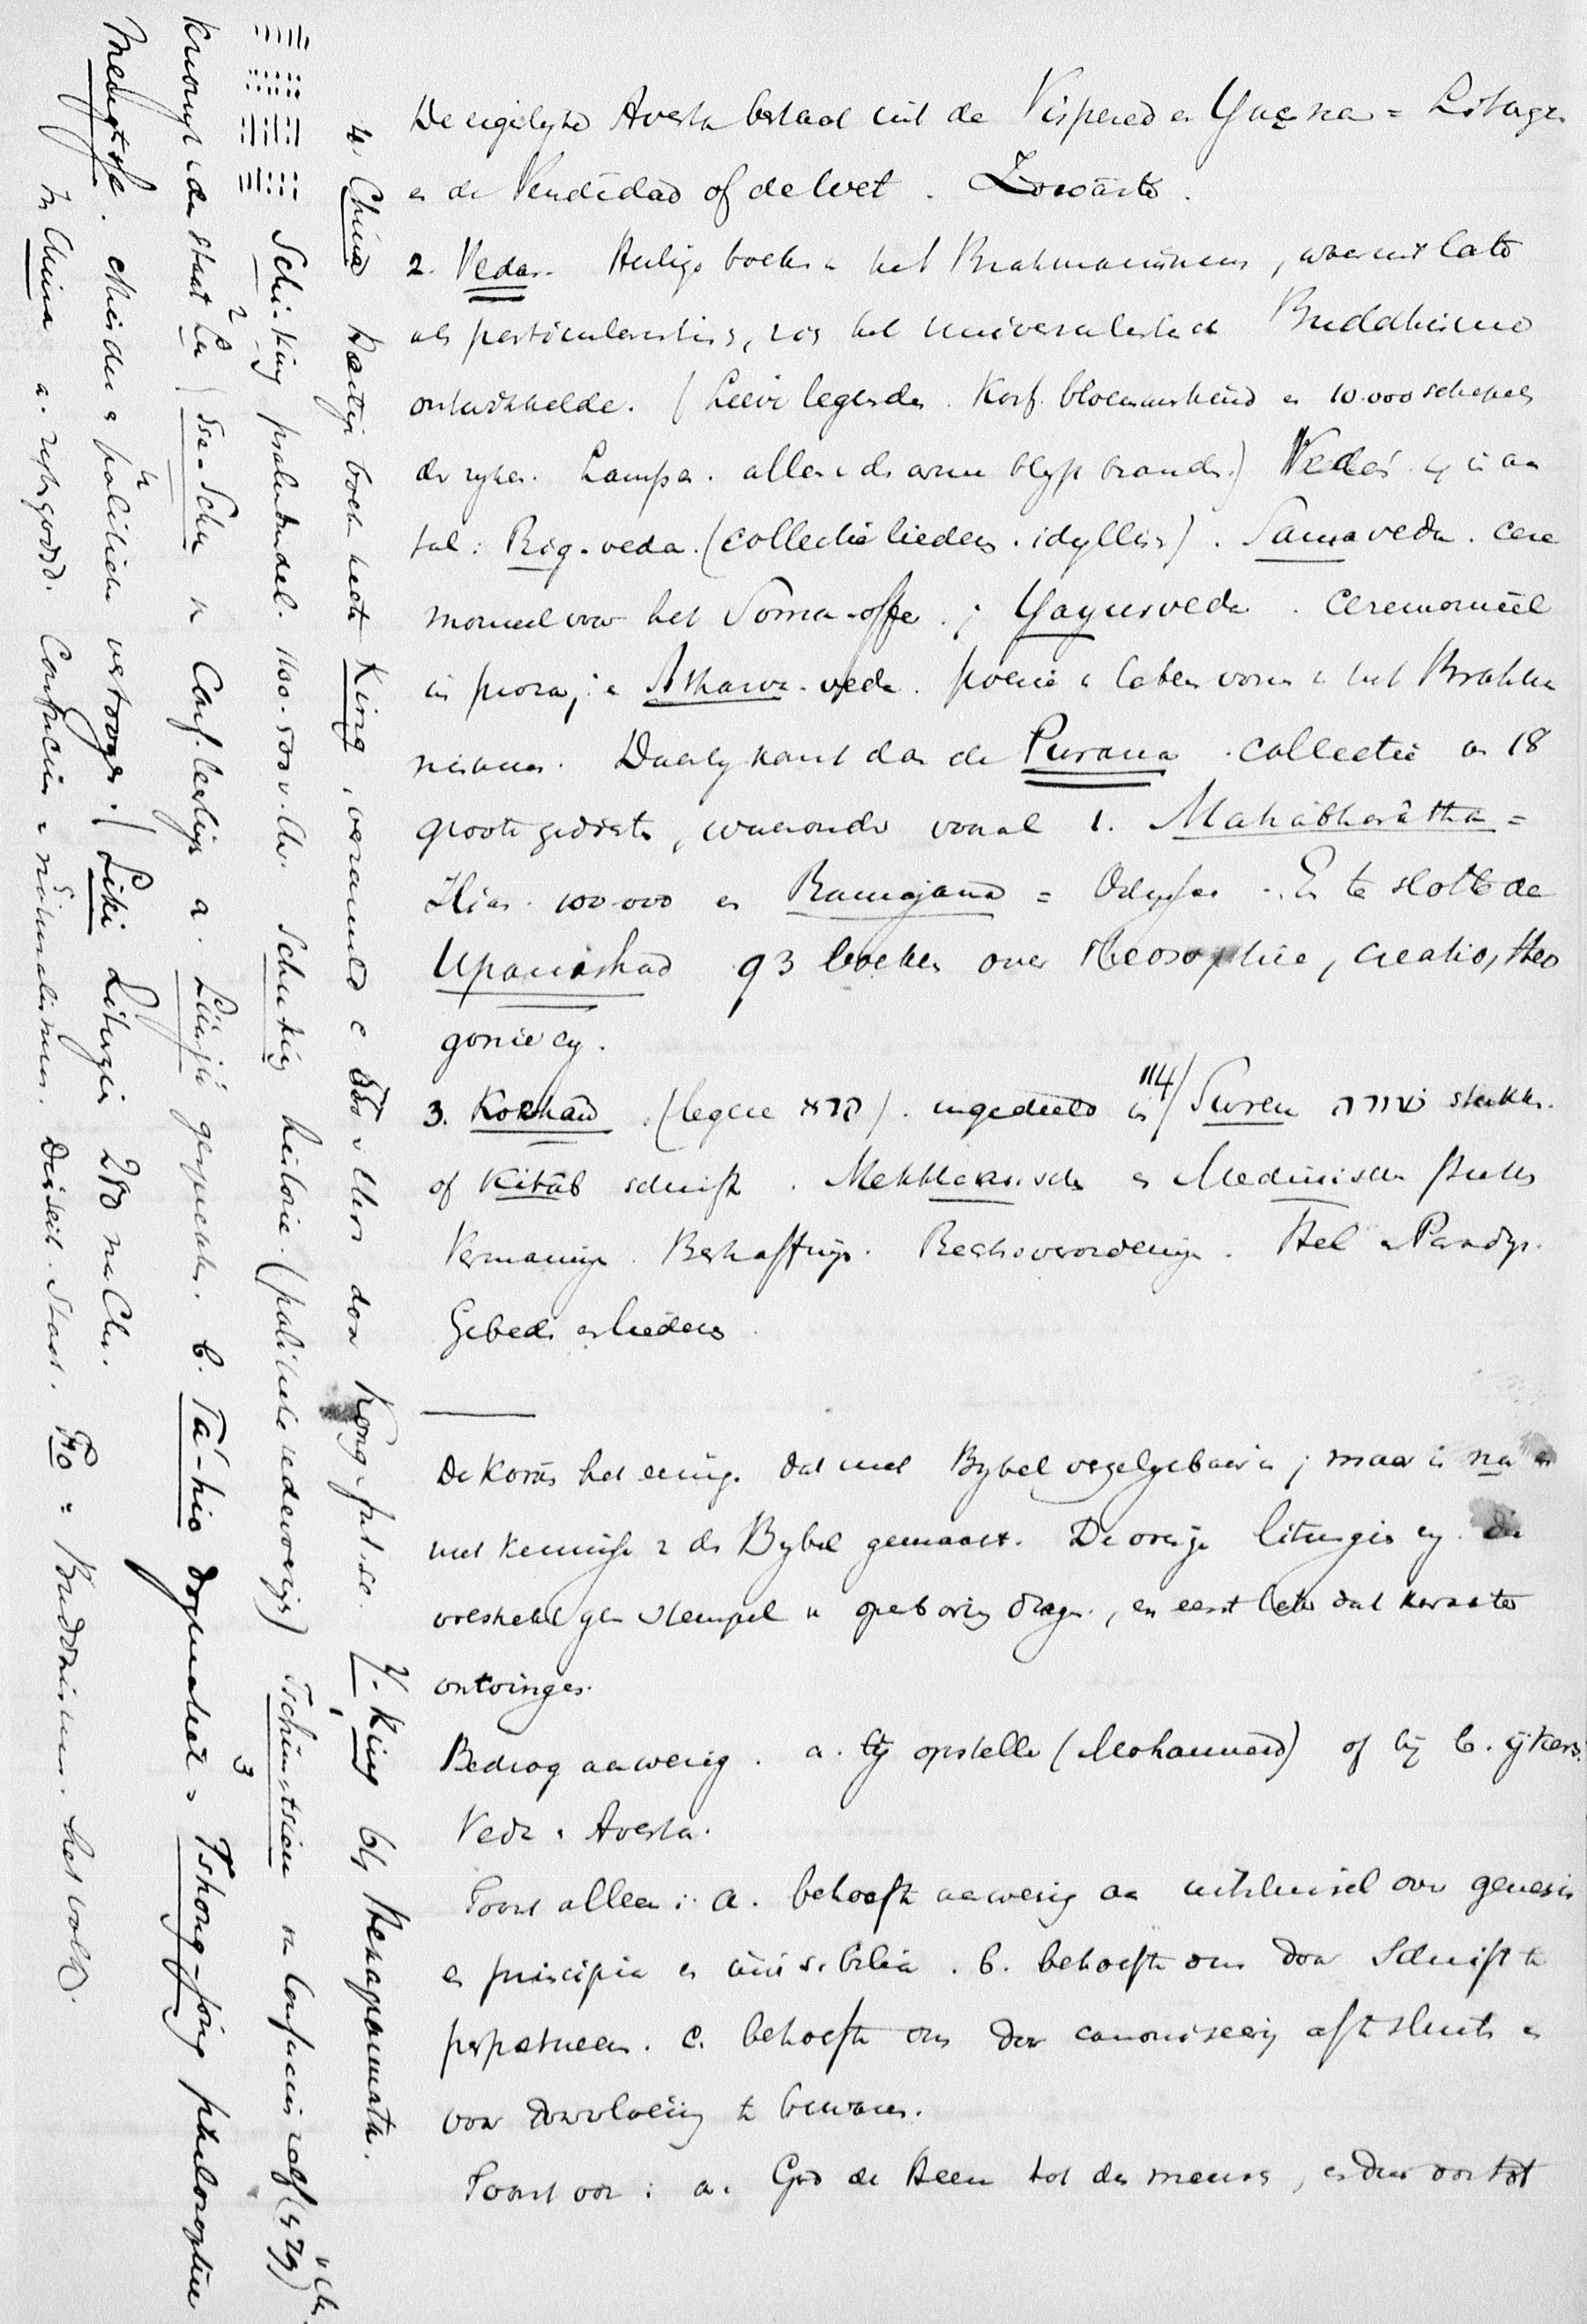 De eigelyke Avesta bestaat uit de Vispered en Yaçna = Liturgie
en de Vendidad of de wet.
2. Vedas. Heilige boeken van het Brahmanismus, waaruit later
als particularistisch, zich het universalistisch Buddhisme
ontwikkelde. (Lieve legenden. Korf bloemen en 10.000 schepels
der ryken. Lampen. allen de arme blyft branden.) Veda's 4 in aan
tal: Rig-veda. (collectie liederen. idyllisch). Samaveda. cere
monieel voor het Soma-offer; Yayurveda. Ceremonieel
in proza; en Atharva-veda. poezie in lateren vorm van het Brahma
nismus. Daarby komt dan de Purana. collectie van 18
groote gedichten, waaronder vooral 1. Mahâbhârâtha =
Ilias. 100.000 en Ramajana = Odyssea. En te slotte de
Upanishad 93 boeken over theosophie, creatio, theo
gonie cy.
3. Korhan. (legere קרא). ingedeeld in 114 Suren שורה stukken.
of Kitâb schrift. Mekkaansche en Medinische stukken
Vermaning. Bestraffing. Rechtsverordening. Hel en Paradys.
Gebeden en liederen.
De Koran het eenige dat met Bybel vergelykbaar is; maar is na en
met kennisse van de Bybel gemaakt. De overige liturgie cy. die
volstrekt geen stempel van openbaring dragen, en eerst later dat karakter
ontvingen.
Bedrog aanwezig. a. by opsteller (Mohammed) of by b. ijveraars.
Veda en Avesta.
Toont alleen: a. behoefte aanwezig aan uitsluitsel over genesis
en principia en invisibilia. b. behoefte om door Schrift te
perpetueeren. c. behoefte om door canoniseering af te sluiten en
voor vervloeiing te bewaren.
Toont voor: a. God de Heere tot de mensch, en dus ook tot
4. China heilige boeken heeten King, verzameld c 550 v. Chr. door Kong-fut-se. Y-King by Hexagrammata.
Schi-King psalmbundel. 1100-500 v. Chr. Schu-King historie. (politieke redeneering) Tschüntsien van Confucius zelf (479) v Chr.
Kronyk van den staat Lu) Sse-Schu van Conf. leerlingen a. Lünjü gesprekken. b. Tá-hio dogmatiek. Tshong-jong philosophie
Mengtse. en politieke vertoogen.) Liki Liturgie 250 na Chr.
In China a. Confucius = naturalismus. Staat. Fo = Buddhismus. het volk.